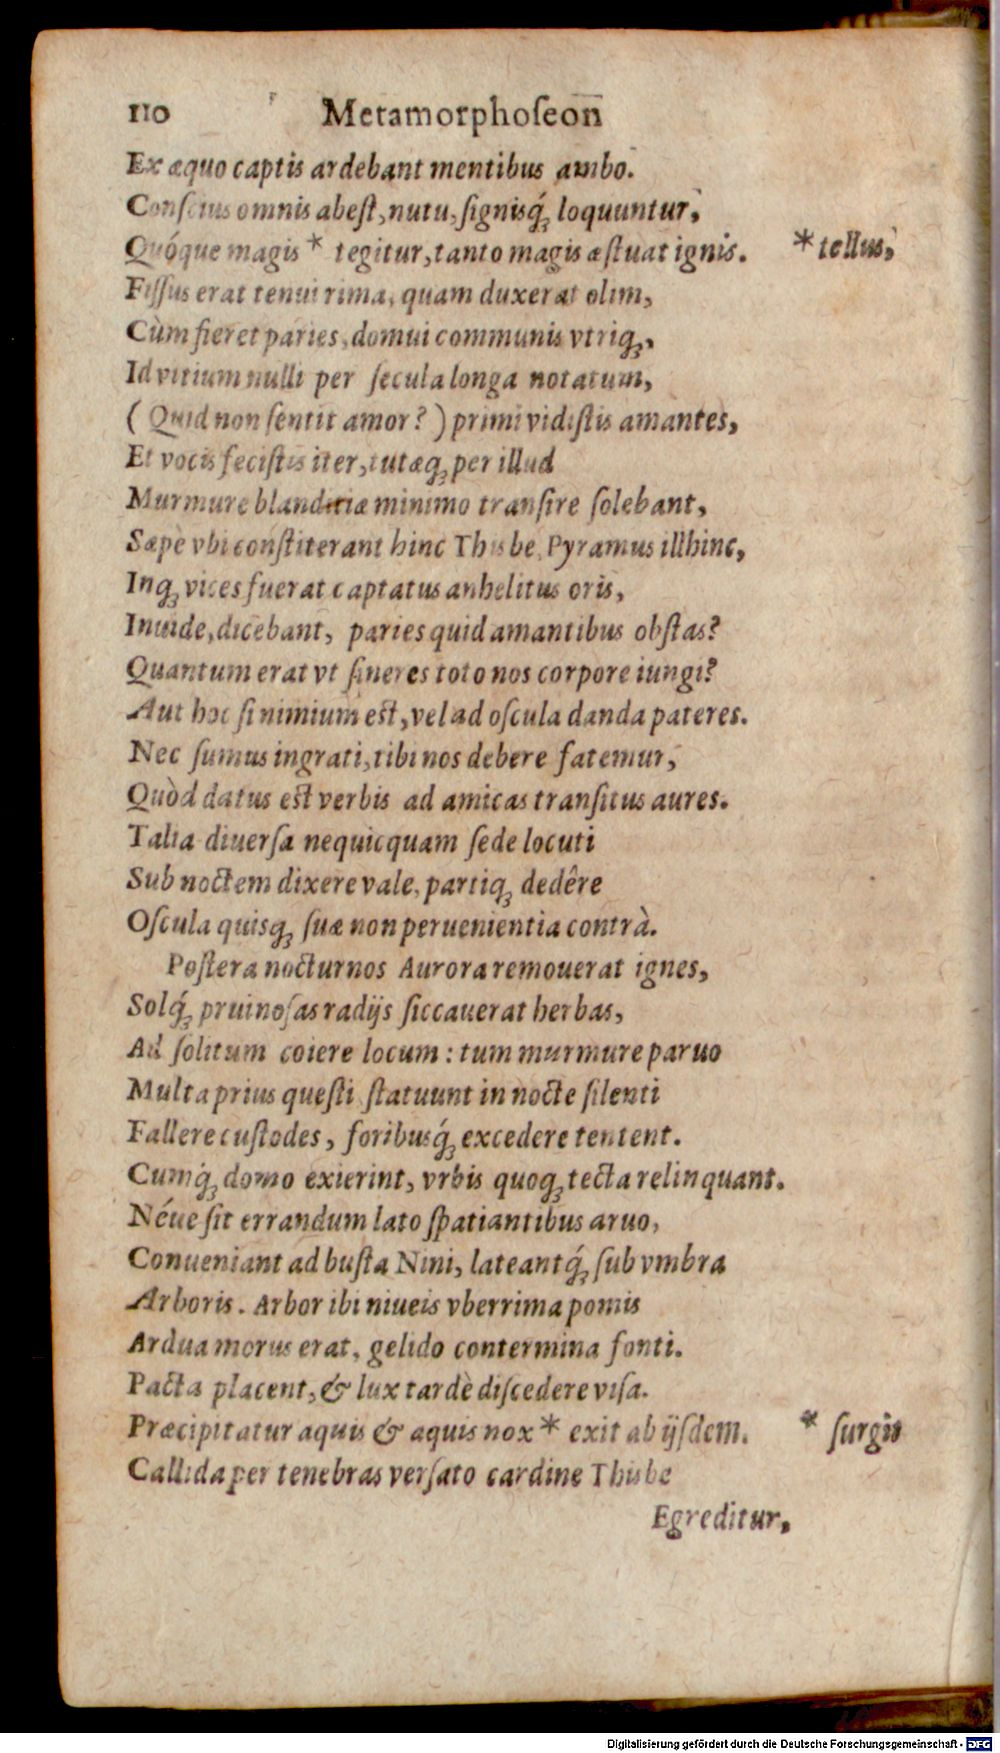 110 Metamorphoſeon
Ex æquo captis ardebant mentibus ambo.
Conſcius omnis abeſt, nutu, ſignisq́ꝫ loquuntur,
Quóque magis * tegitur, tanto magis æſtuat ignis. * tellus,
Fiſſus erat tenui rima, quam duxerat olim,
Cùm fieret paries, domui communis vtriqꝫ,
Id vitium nulli per ſecula longa notatum,
( Quid non ſentit amor? ) primi vidiſtis amantes,
Et vocis feciſtis iter, tutæqꝫ per illud
Murmure blanditiæ minimo tranſire ſolebant,
Sæpè vbi conſtiterant hinc Thisbe, Pyramus illhinc,
Inqꝫ vices fuerat captatus anhelitus oris,
Inuide, dicebant, paries quid amantibus obſtas?
Quantum erat vt ſineres toto nos corpore iungi?
Aut hoc ſi nimium eſt, vel ad oſcula danda pateres.
Nec ſumus ingrati, tibi nos debere fatemur,
Quòd datus eſt verbis ad amicas tranſitus aures.
Talia diuerſa nequicquam ſede locuti
Sub noctem dixere vale, partiqꝫ dedêre
Oſcula quisqꝫ ſuæ non peruenientia contrà.
Poſtera nocturnos Aurora remouerat ignes,
Solq́ꝫ pruinoſas radijs ſiccauerat herbas,
Ad ſolitum coiere locum : tum murmure paruo
Multa prius queſti ſtatuunt in nocte ſilenti
Fallere cuſtodes, foribusq́ꝫ excedere tentent.
Cumq́ꝫ domo exierint, vrbis quoqꝫ tecta relinquant.
Néue ſit errandum lato ſpatiantibus aruo,
Conueniant ad buſta Nini, lateantq́ꝫ ſub vmbra
Arboris. Arbor ibi niueis vberrima pomis
Ardua morus erat, gelido contermina fonti.
Pacta placent, & lux tardè diſcedere viſa.
Præcipitatur aquis & aquis nox * exit ab ijſdem. * ſurgis
Callida per tenebras verſato cardine Thisbe
Egreditur,
Digitalisierung gefördert durch die Deutsche Forschungsgemeinschaft - DFG